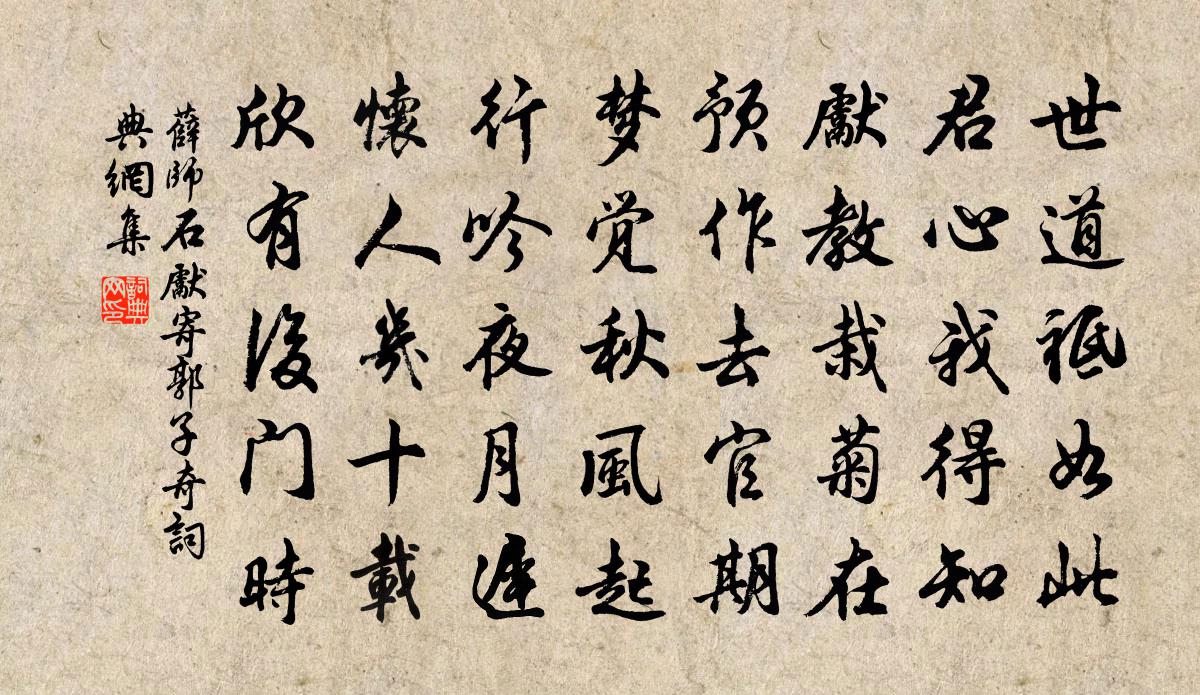 世道祗如此
君心我得知
獻教栽菊在
预作去官期
梦觉秋風起
行吟夜月遲
懷人幾十載
欣有後门時
薛師石獻寄郭子奇詞
典網集
詞典网印